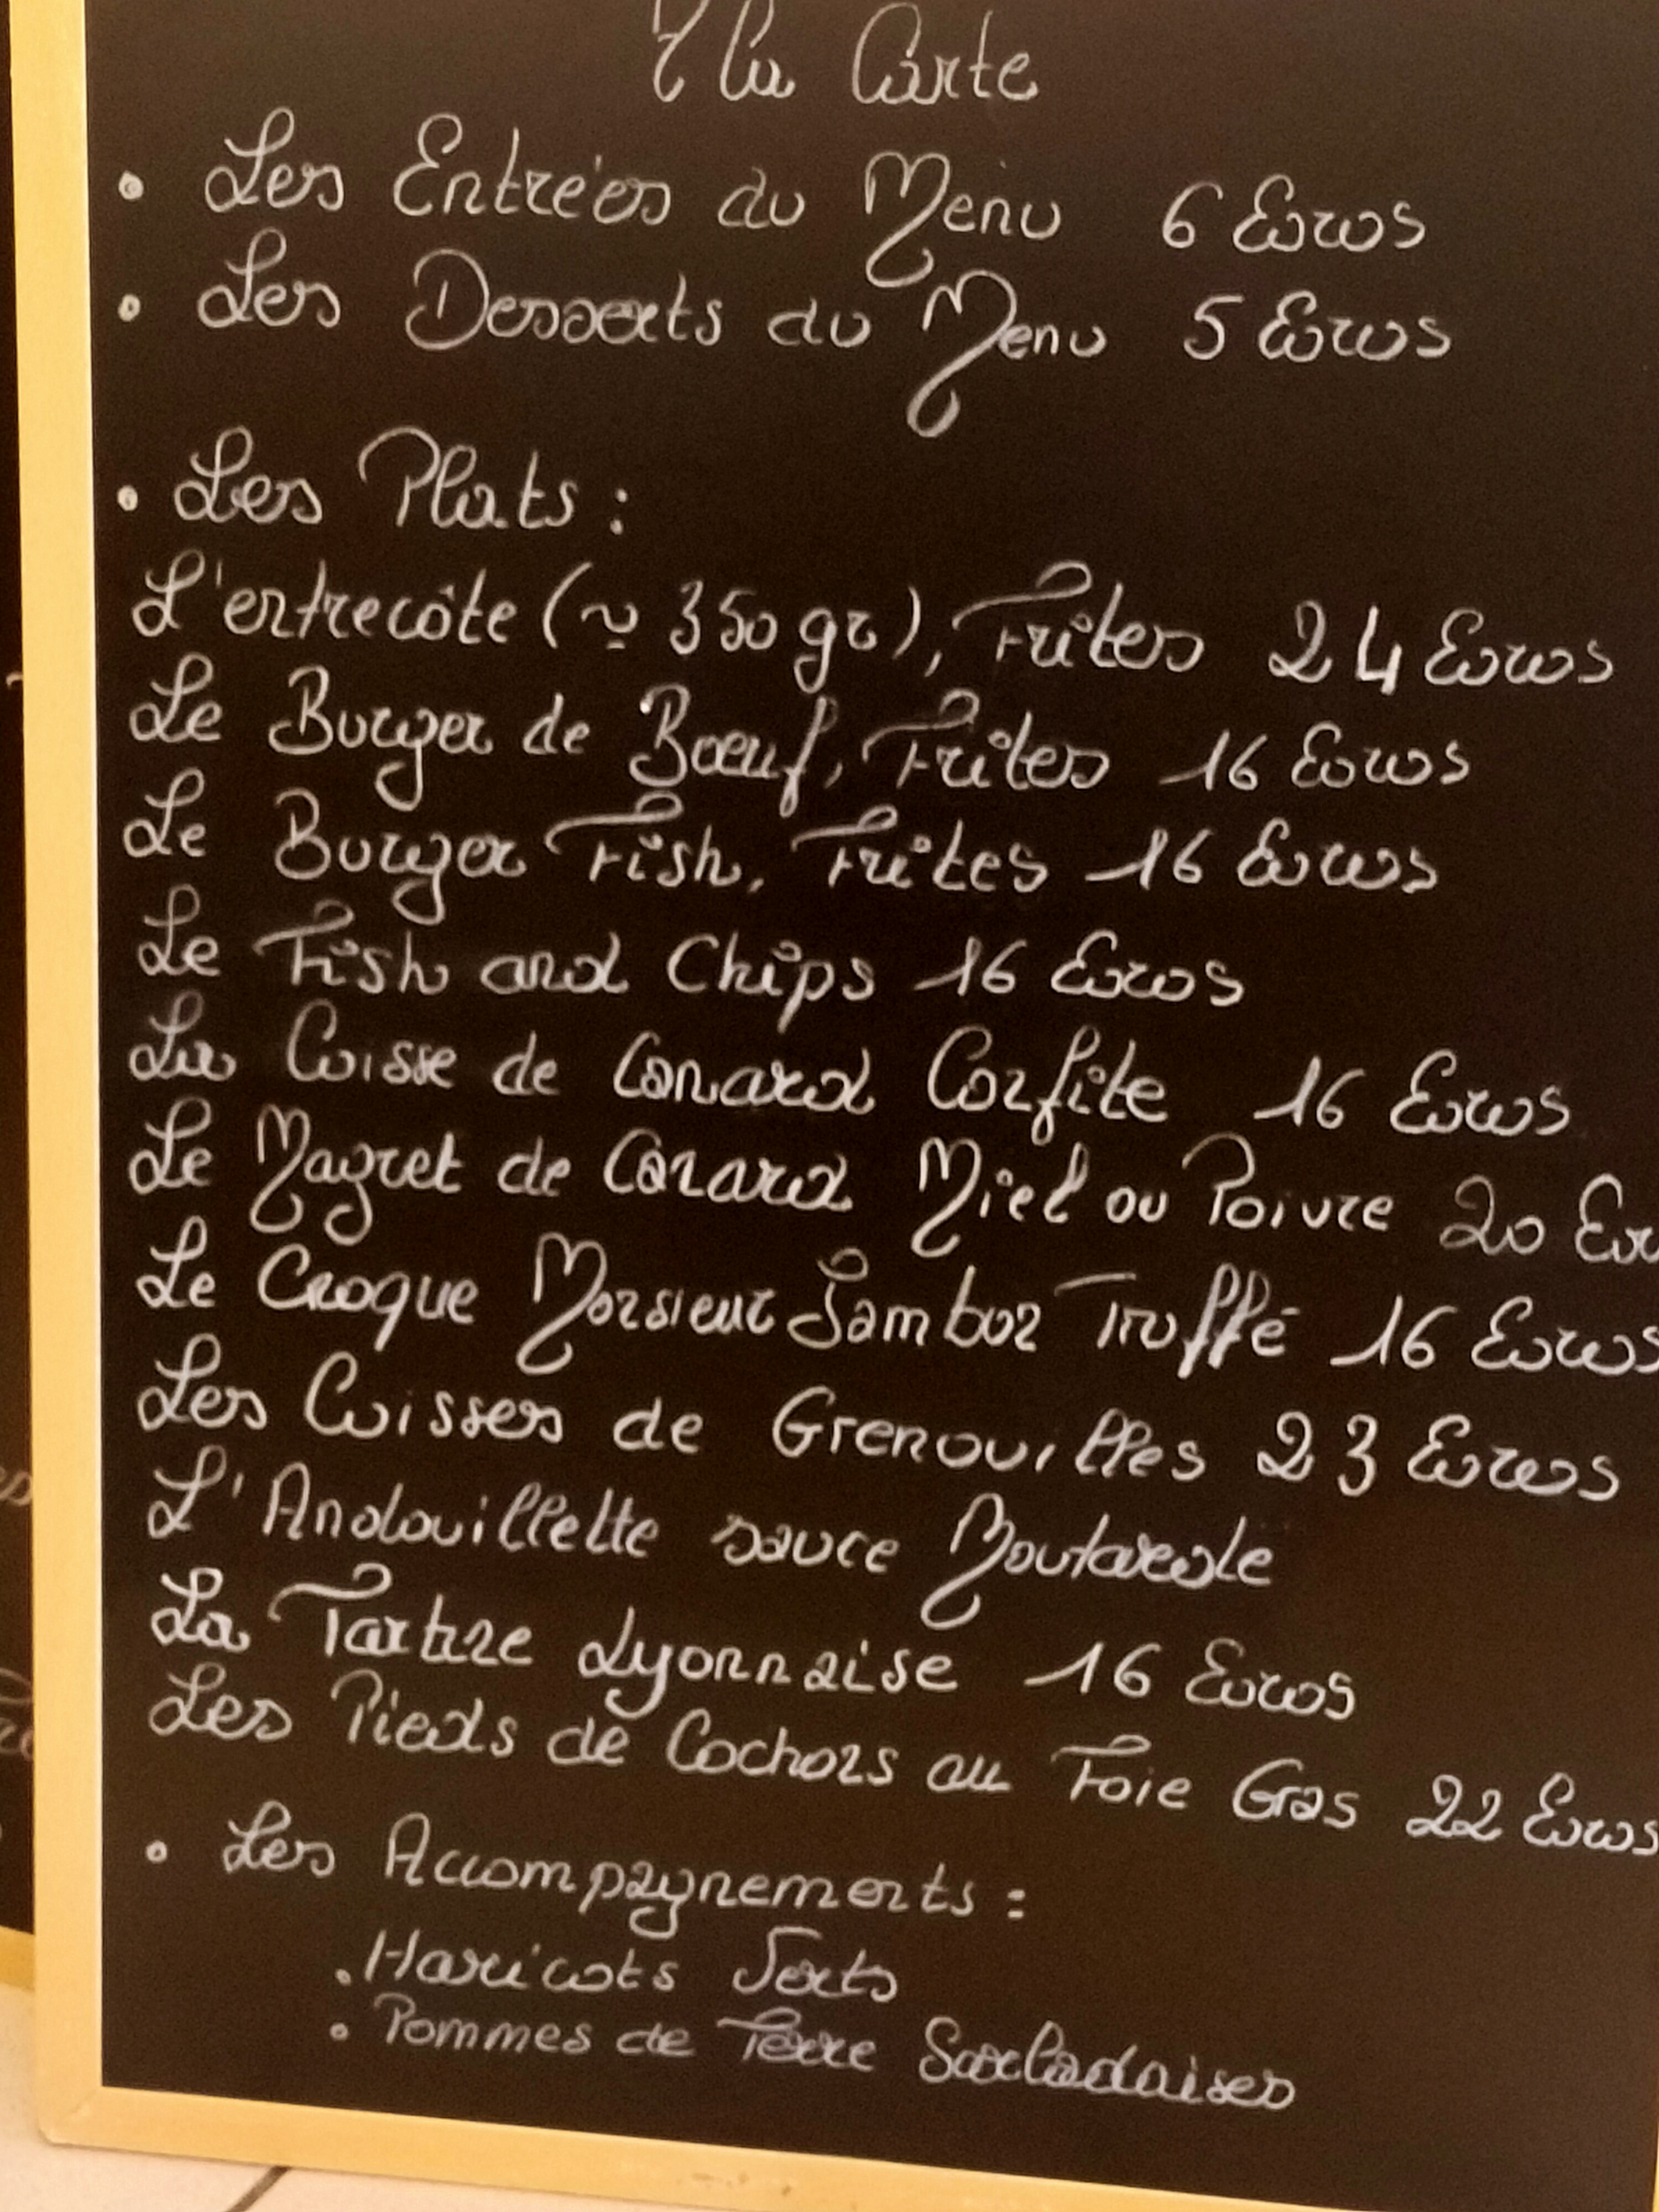 à la Carte
• Les Entrées du Menu 6 Euros
• Les Desserts du Menu 5 Euros
• Les Plats :
L'entrecôte (≃ 350 gr), Frites 24 Euros
Le Burger de Bœuf, Frites 16 Euros
Le Burger Fish, Frites 16 Euros
Le Fish and Chips 16 Euros
La Cuisse de Canard Confite 16 Euros
Le Magret de Canard Miel ou Poivre 20 Eur
Le Croque Monsieur Jambon Truffé 16 Euros
Les Cuisses de Grenouilles 23 Euros
L'Andouillette sauce Moutarde
La Tartine Lyonnaise 16 Euros
Les Pieds de Cochons au Foie Gras 22 Euros
• Les Accompagnements :
• Haricots Verts
• Pommes de Terre Sarladaises